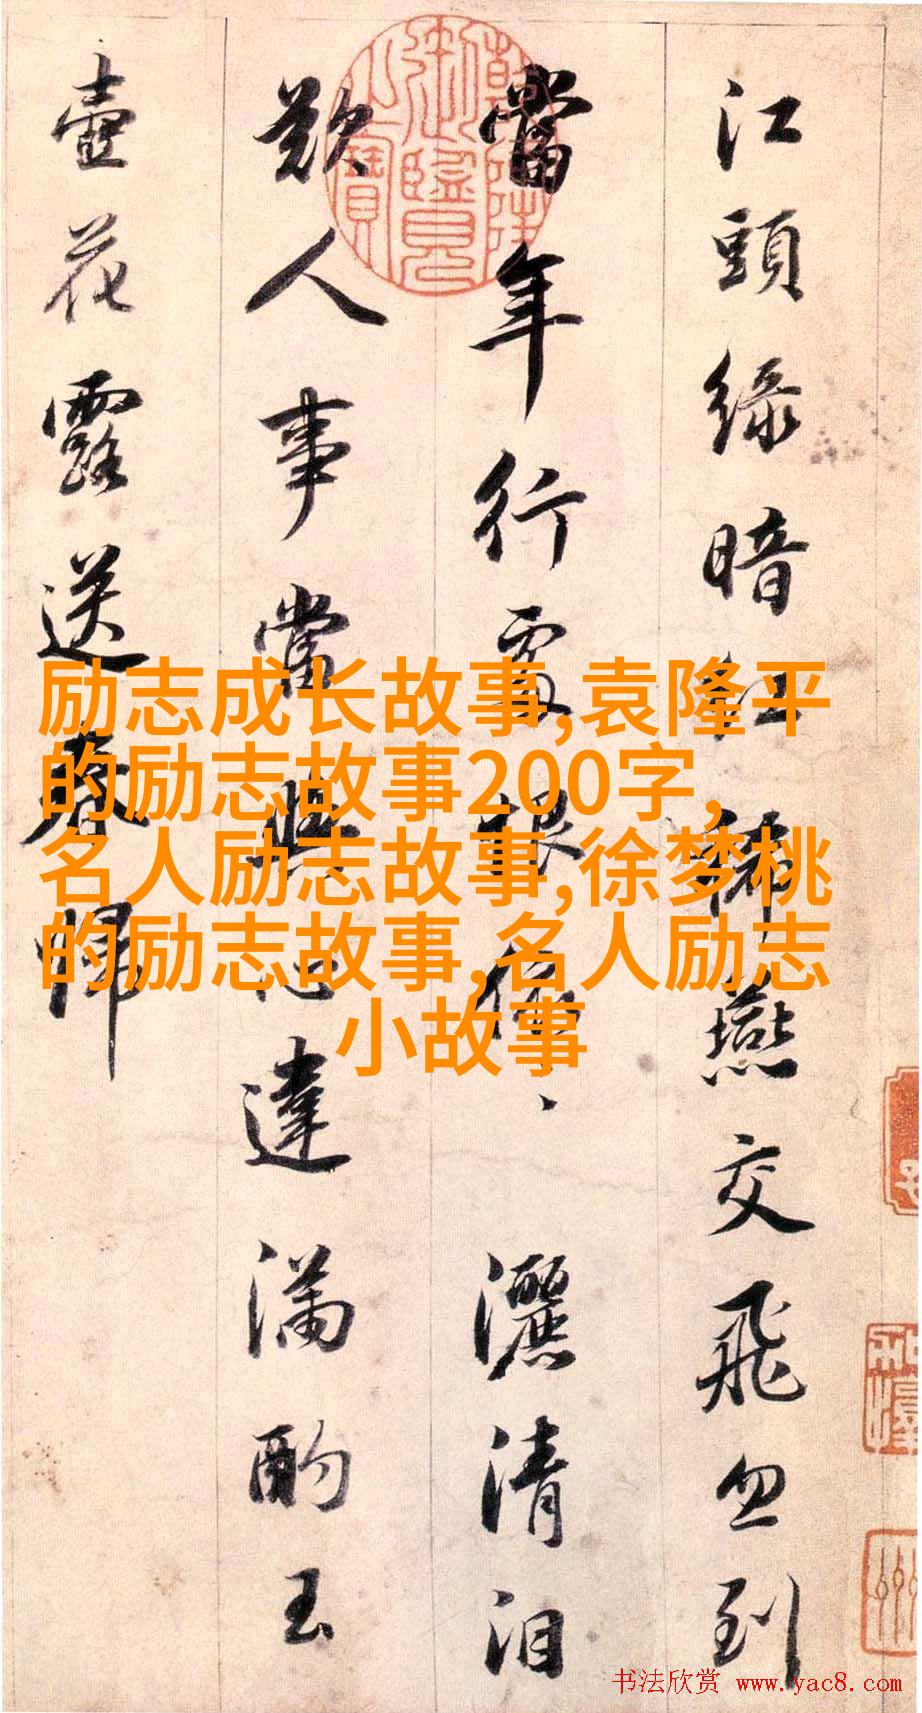 江頭綠暗紅稀燕交飛忽到
當年行處恨依、灑清泪
歎人事當與心違滿酌玉
壺花露送春歸
励志成长故事,袁隆平
的励志故事200字,
名人励志故事,徐梦桃
的励志故事,名人励志
小故事
书法欣赏 www.yac8.com